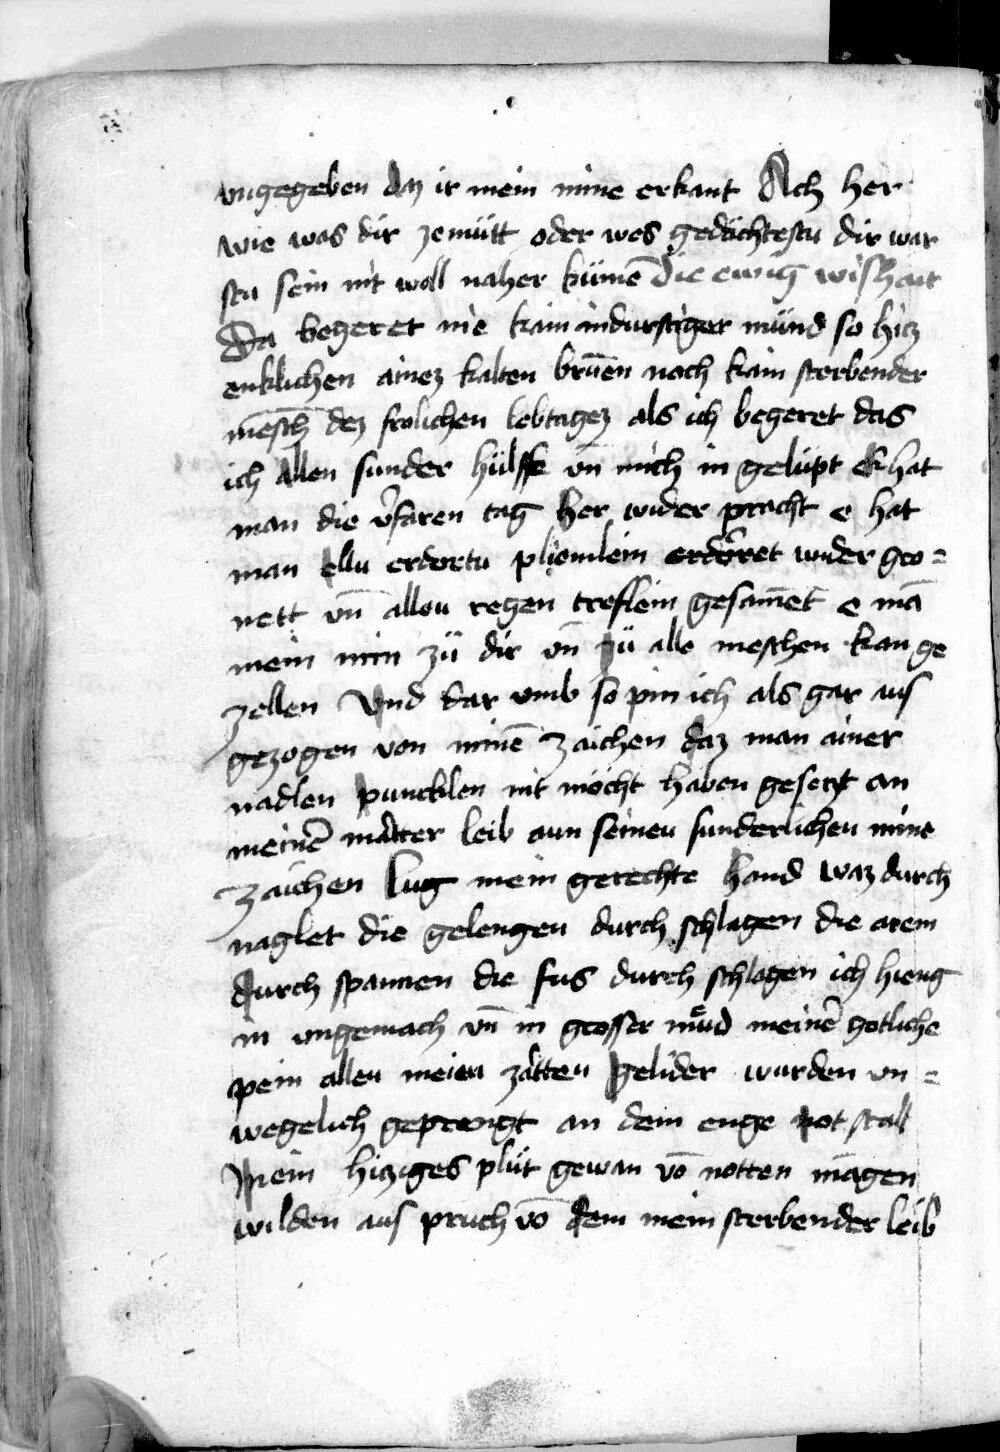 vngegeben daz ir mein mine erkant Ach her
wie was dir zemütt oder wes gedüchtestu dir war
stu sein nit woll naher kümē die ewig wishait
Da begeret nie kain indurstiger münd so hicz
enklichen ainez kalten brūen noch kain sterbender
mēsch dez frolichen lebtagez als ich begeret das
ich allen sunder hülffe vn̄ mich in gelüpt E hat
man die v̄faren tag her wider pracht e hat
man ellu erdortu pliemlein erdorret wider gro=
nett vn̄ allou regen treflein gesam̄et e mā
mein min zü dir vn̄ zü alle meschen kan ge
zellen Vnd dar vmb so pin ich als gar aus
gezogen von minē zaichen daz man ainer
nadlen puncklen nit möcht haben gesetzt an
meinē matter leib aun seineu sunderlicheu mine
zaichen Lug mein gerechte hand waz durch
naglet die gelengen durch schlagen die arem
durch spannen die fus durch schlagen ich hieng
in vngemach vn̄ in grosser müd meinē gotliche
pein alleu meieu zatteu gelider wurden vn=
wegelich geprengt an dem enge not stall
Mein hicziges plüt gewan vō notten māgen
wilden aus pruch vō dem mein sterbender leib